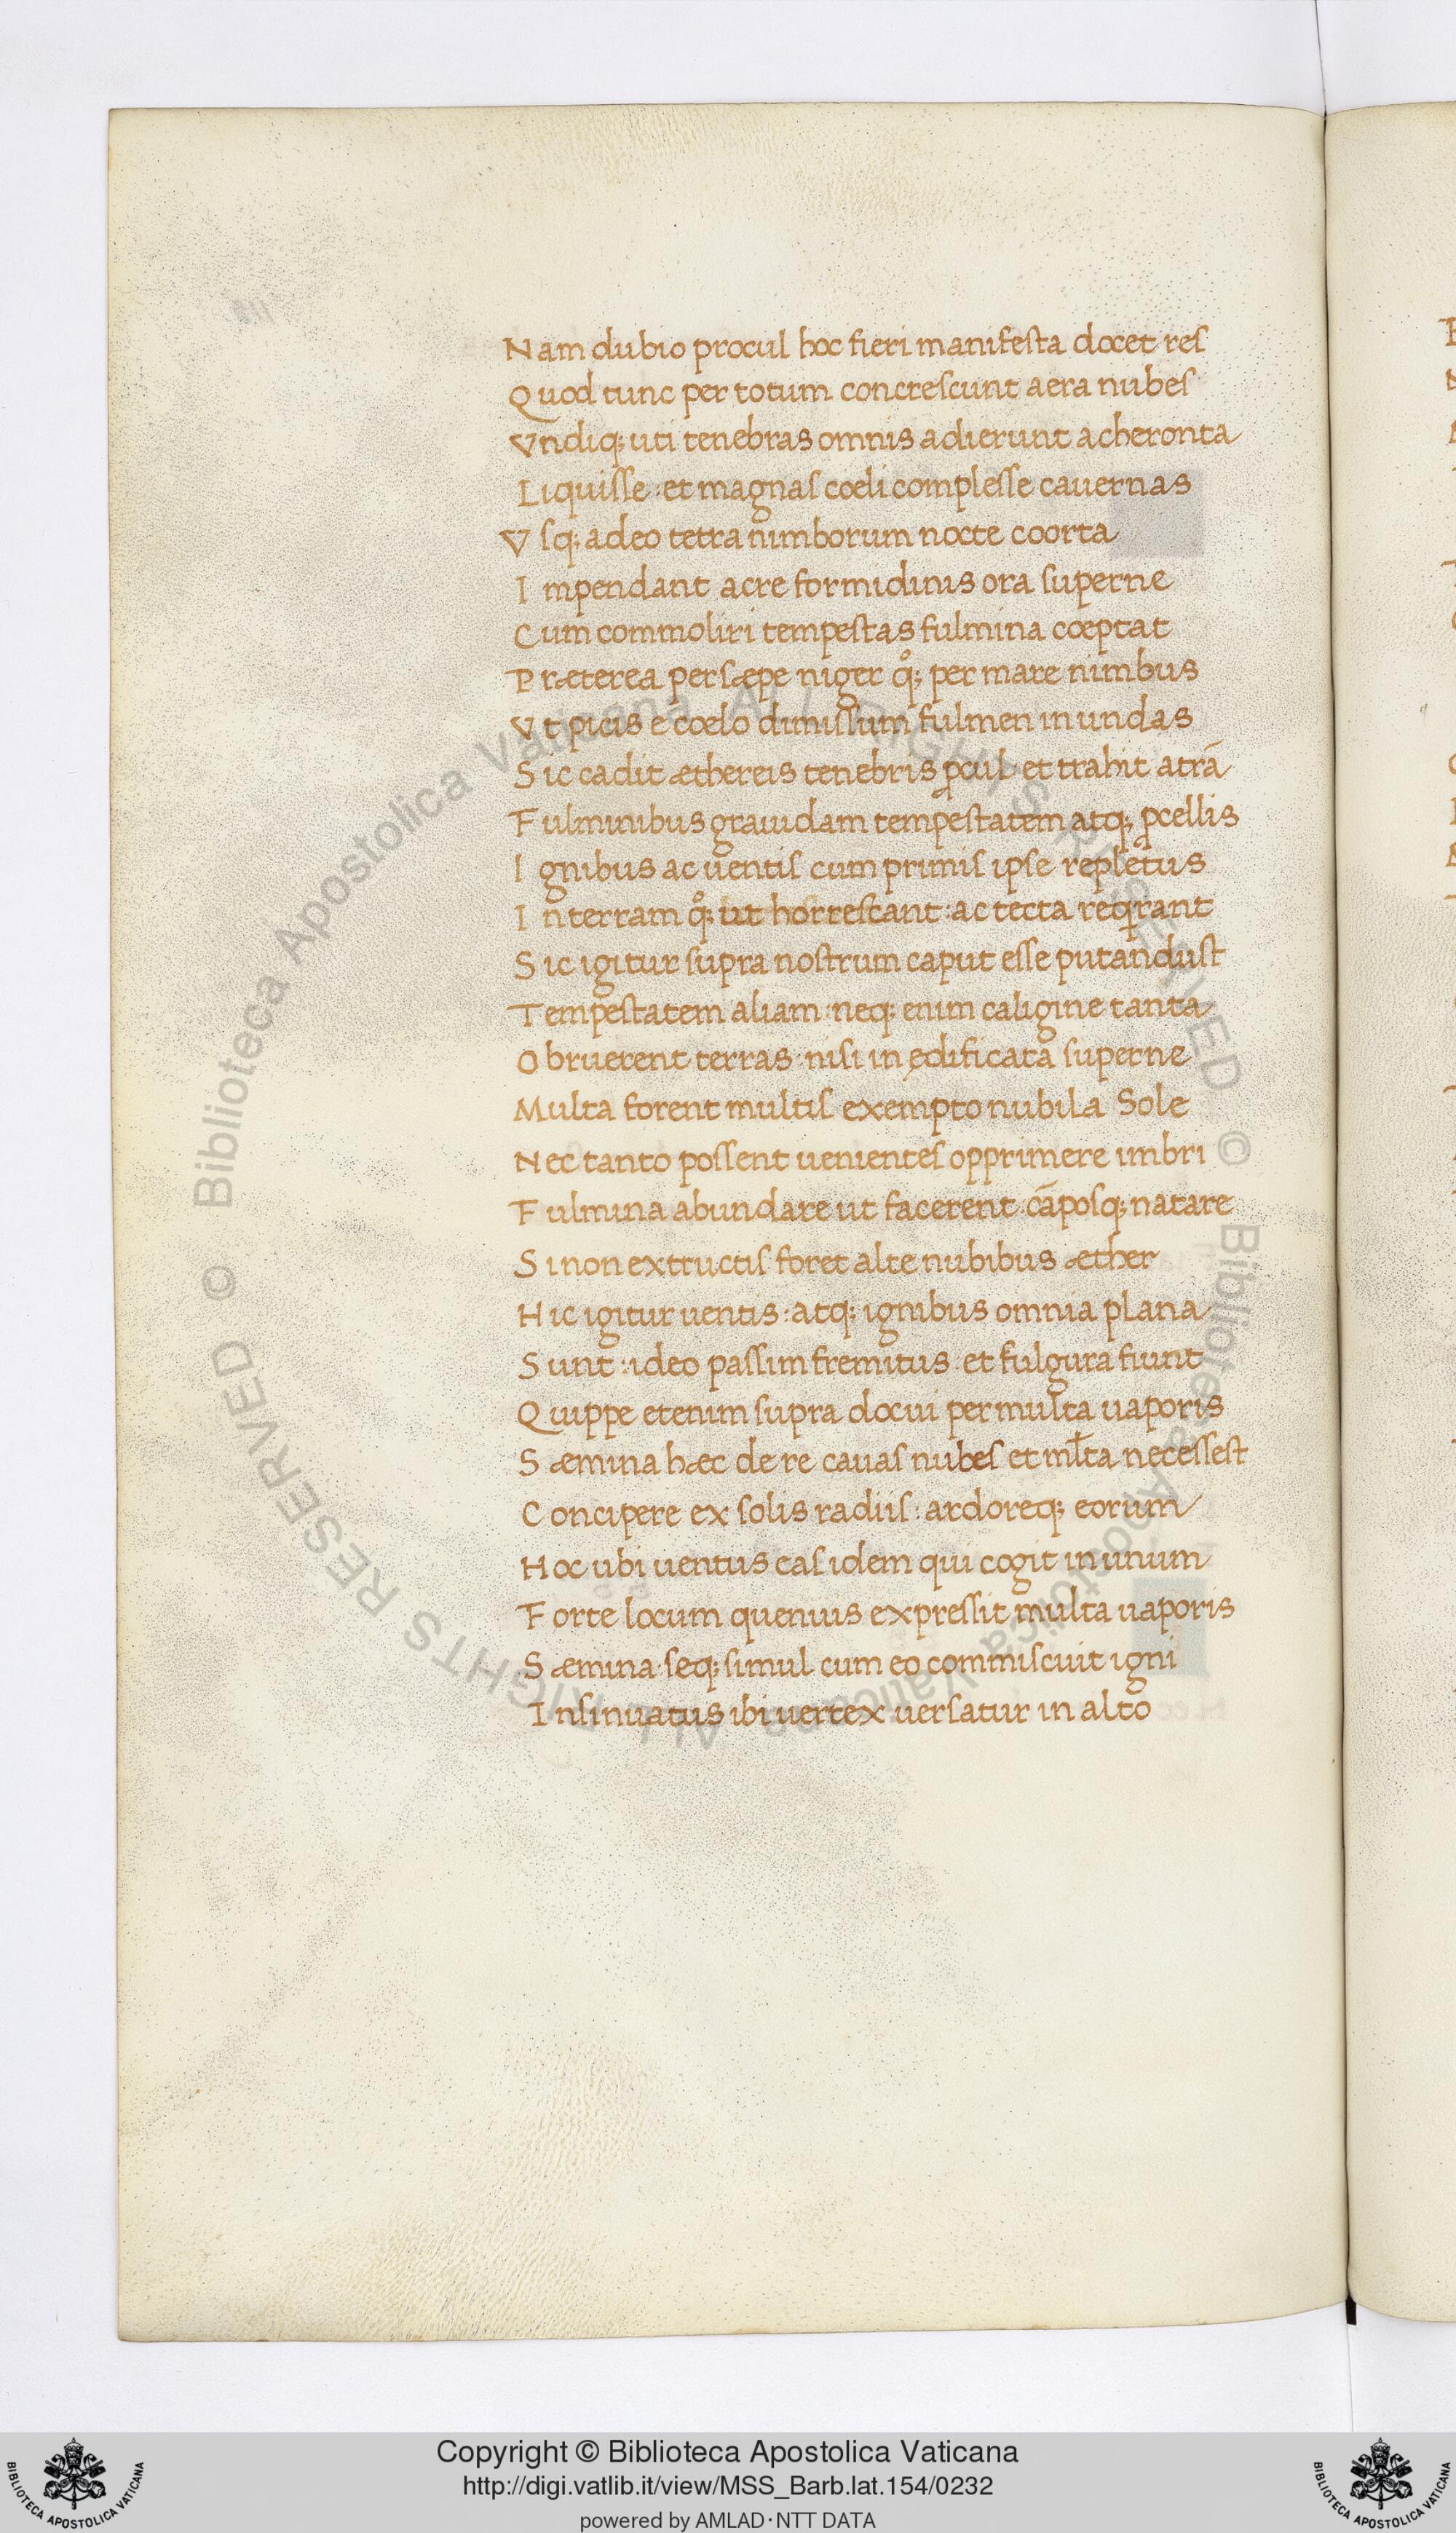 Nam dubio procul hoc fieri manifeſta docet reſ
Quod tunc per totum concreſcunt aera nubeſ
Vndiq; uti tenebras omnis adierunt acheronta
Liquiſſe : et magnaſ cœli compleſſe cauernas
Vſq; adeo tetra nimborum nocte coorta
Impendant acre formidinis ora ſuperne
Cum commoliri tempeſtas fulmina cœptat
Præterea perſæpe niger qͦ; per mare nimbus
Vt picis e cœlo dimiſſum fulmen in undas
Sic cadit æthereis tenebris ꝓcul et trahit atrā
Fulminibus grauidam tempeſtatem atq; ꝓcellis
Ignibus ac uentiſ cum primiſ ipſe repletus
In terram qͦ; ut horreſcant : ac tecta reqͥrant
Sic igitur ſupra noſtrum caput eſſe putanduſt
Tempeſtatem aliam : neq; enim caligine tanta
Obruerent terras : niſi in ędificata ſuperne
Multa forent multiſ exempto nubila Sole
Nec tanto poſſent uenienteſ opprimere imbri
Fulmina abundare ut facerent cāpoſq; natare
Si non extructiſ foret alte nubibus æther
Hic igitur uentis : atq; ignibus omnia plana
Sunt : ideo paſſim fremitus : et fulgura fiunt
Quippe etenim ſupra docui permulta uaporis
Sæmina hæc de re cauaſ nubeſ et ml̄ta neceſſeſt
Concipere ex ſolis radiiſ : ardoreq; eorum
Hoc ubi uentus eaſ idem qui cogit in unum
Forte locum quenuis expreſſit multa uaporis
Sæmina : ſeq; ſimul cum eo commiſcuit igni
Inſinuatus ibi uertex uerſatur in alto
© Biblioteca Apostolica Vaticana ALL RIGHTS RESERVED
© Biblioteca Apostolica Vaticana ALL RIGHTS RESERVED
Copyright © Biblioteca Apostolica Vaticana
http://digi.vatlib.it/view/MSS_Barb.lat.154/0232
powered by AMLAD·NTT DATA
BIBLIOTECA APOSTOLICA VATICANA
BIBLIOTECA APOSTOLICA VATICANA